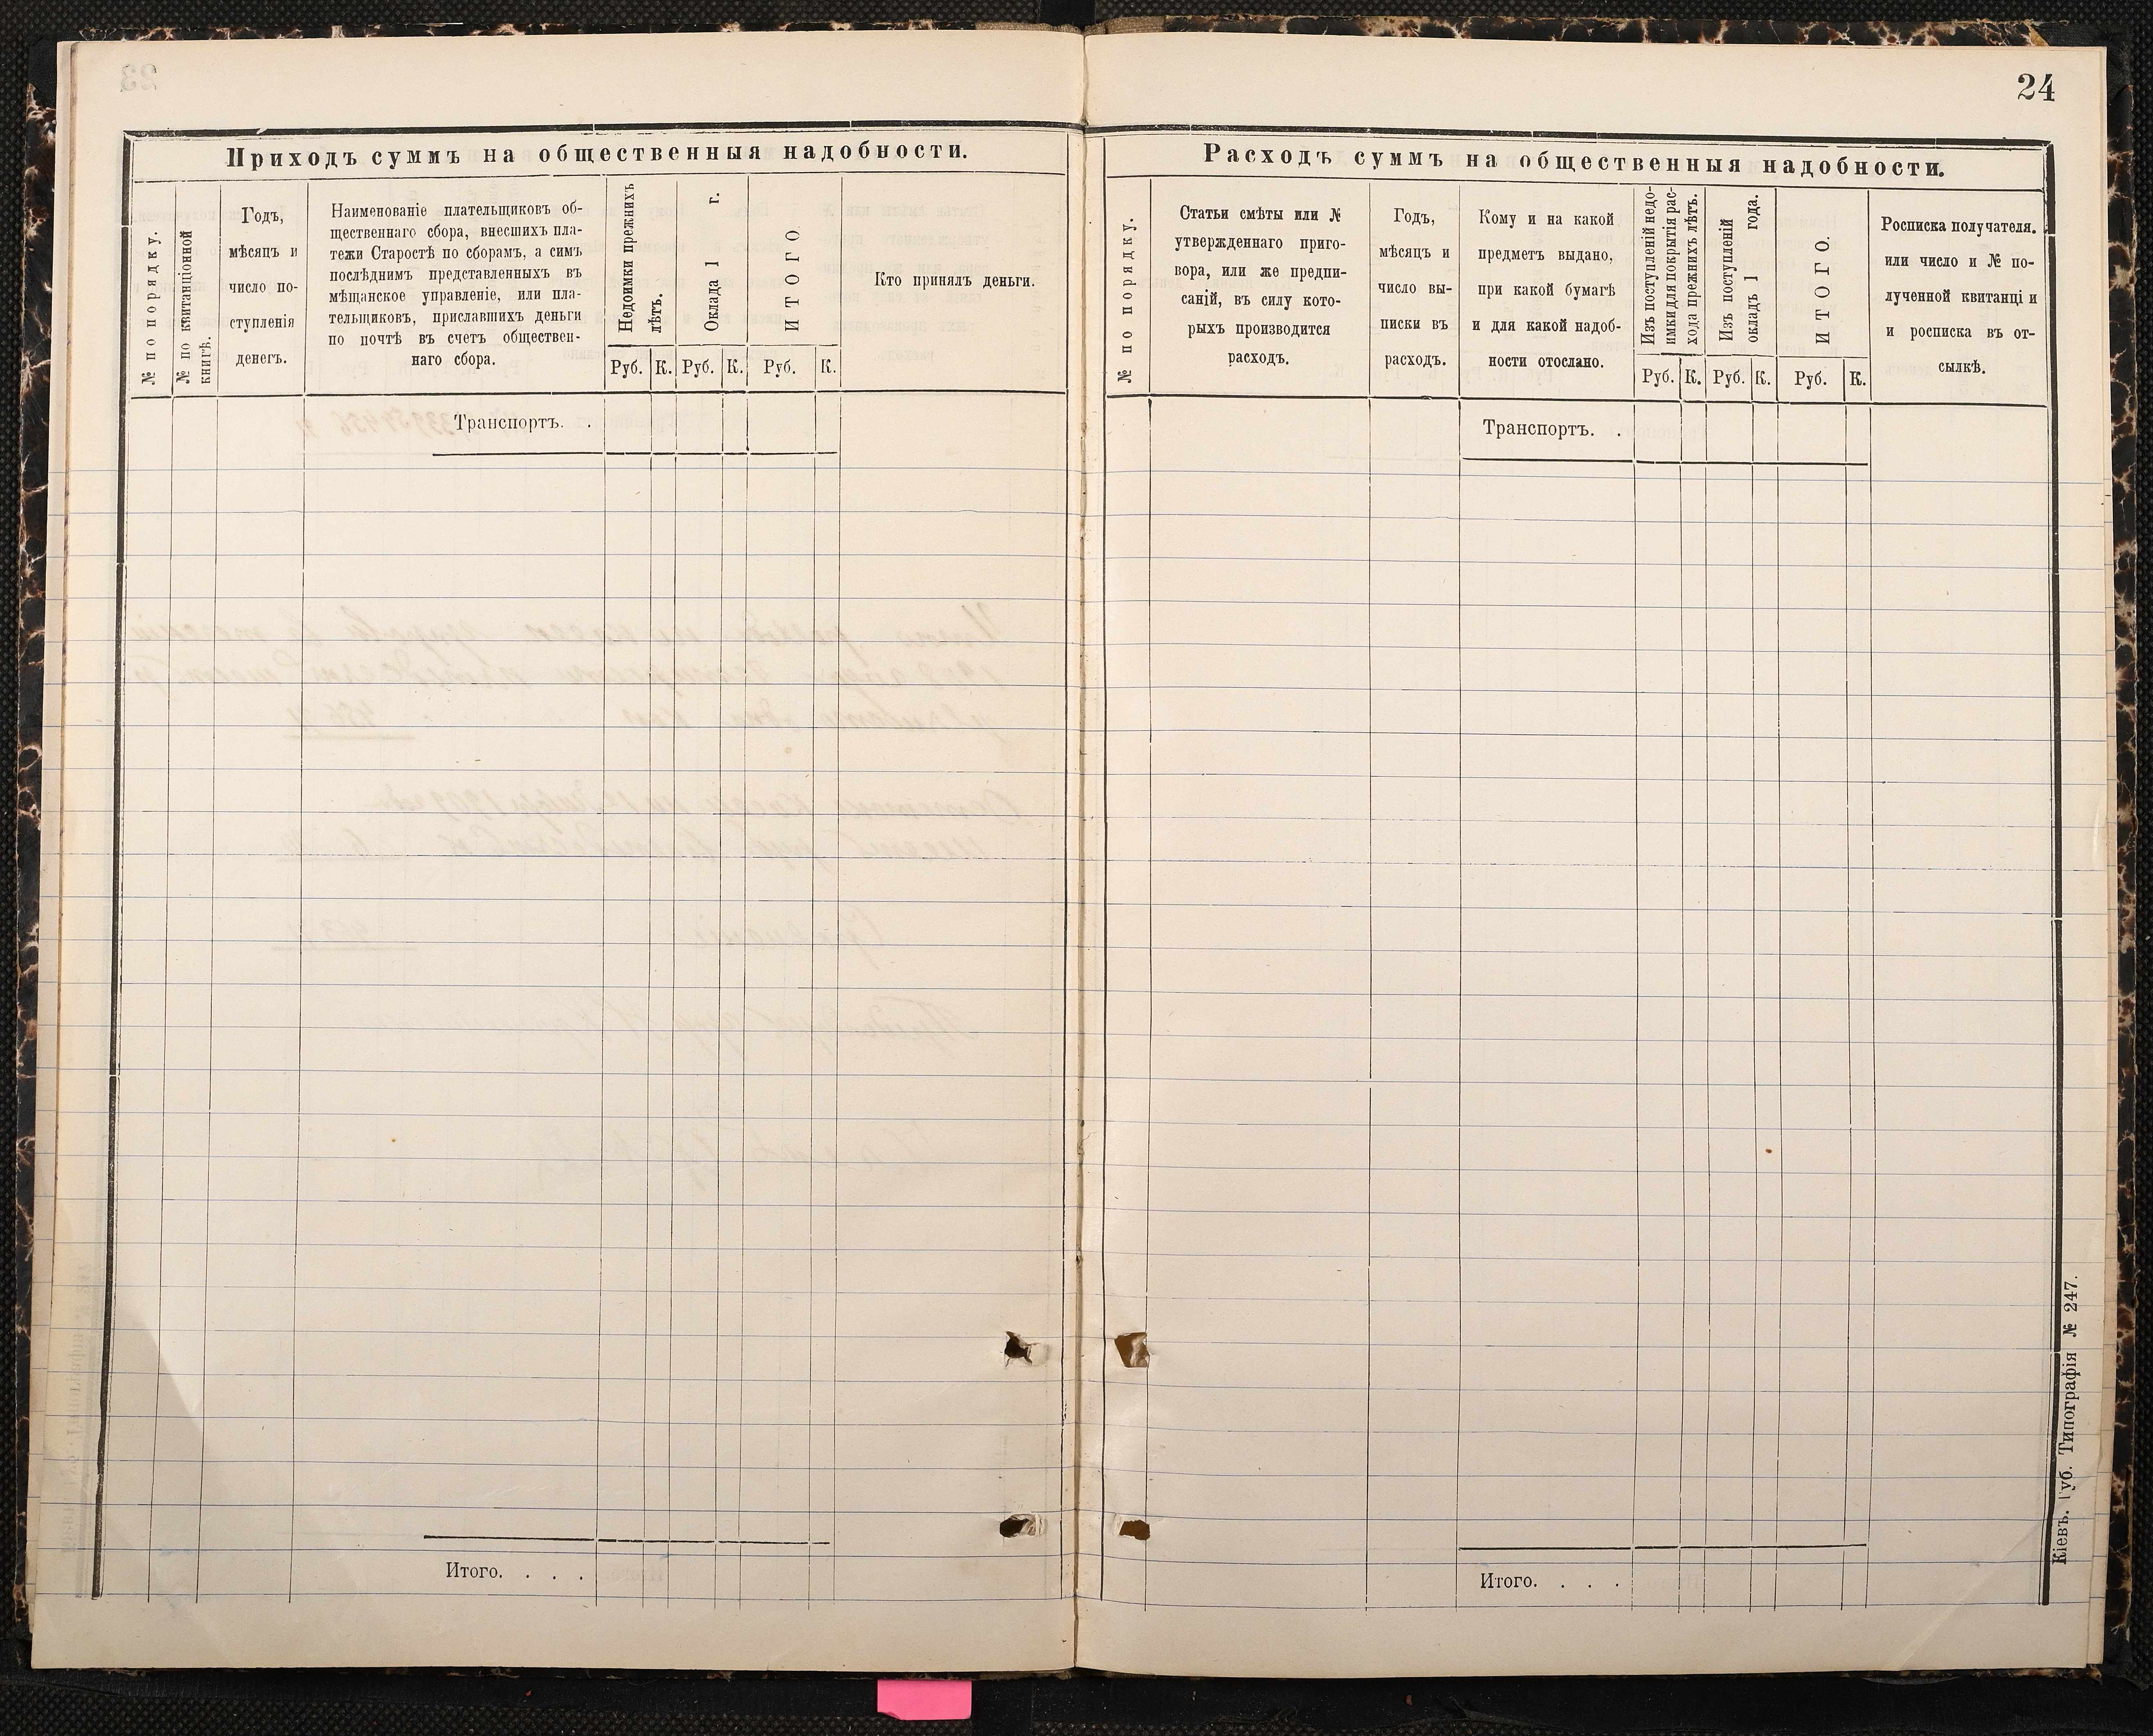 24
Приходъ суммъ на общественныя надобности.
№ по порядку.
№ по квитанціонной
книгѣ.
Годъ,
мѣсяцъ и
число по-
ступленія
денегъ.
Наименованіе плательщиковъ об-
щественнаго сбора, внесшихъ пла-
тежи Старостѣ по сборамъ, а симъ
послѣднимъ представленныхъ въ
мѣщанское управленіе, или пла-
тельщиковъ, приславшихъ деньги
по почтѣ въ счетъ обществен-
наго сбора.
Недоимки прежнихъ
лѣтъ.
Оклада 1 г.
ИТОГО
Кто принялъ деньги.
Руб. К. Руб. К. Руб. К.
Транспортъ. .
Итого. . . .
Расходъ суммъ на общественныя надобности.
№ по порядку.
Статьи смѣты или №
утвержденнаго приго-
вора, или же предпи-
саній, въ силу кото-
рыхъ производится
расходъ.
Годъ,
мѣсяцъ и
число вы-
писки въ
расходъ.
Кому и на какой
предметъ выдано,
при какой бумагѣ
и для какой надоб-
ности отослано.
Изъ поступленій недо-
имки для покрытія рас-
хода прежнихъ лѣтъ.
Изъ поступленій
окладъ 1 года.
ИТОГО.
Росписка получателя.
или число и № по-
лученной квитанці и
и росписка въ от-
сылкѣ.
Руб. К. Руб. К. Руб. К.
Транспортъ. .
Итого. . . .
Кіевъ. Губ. Типографія № 247.